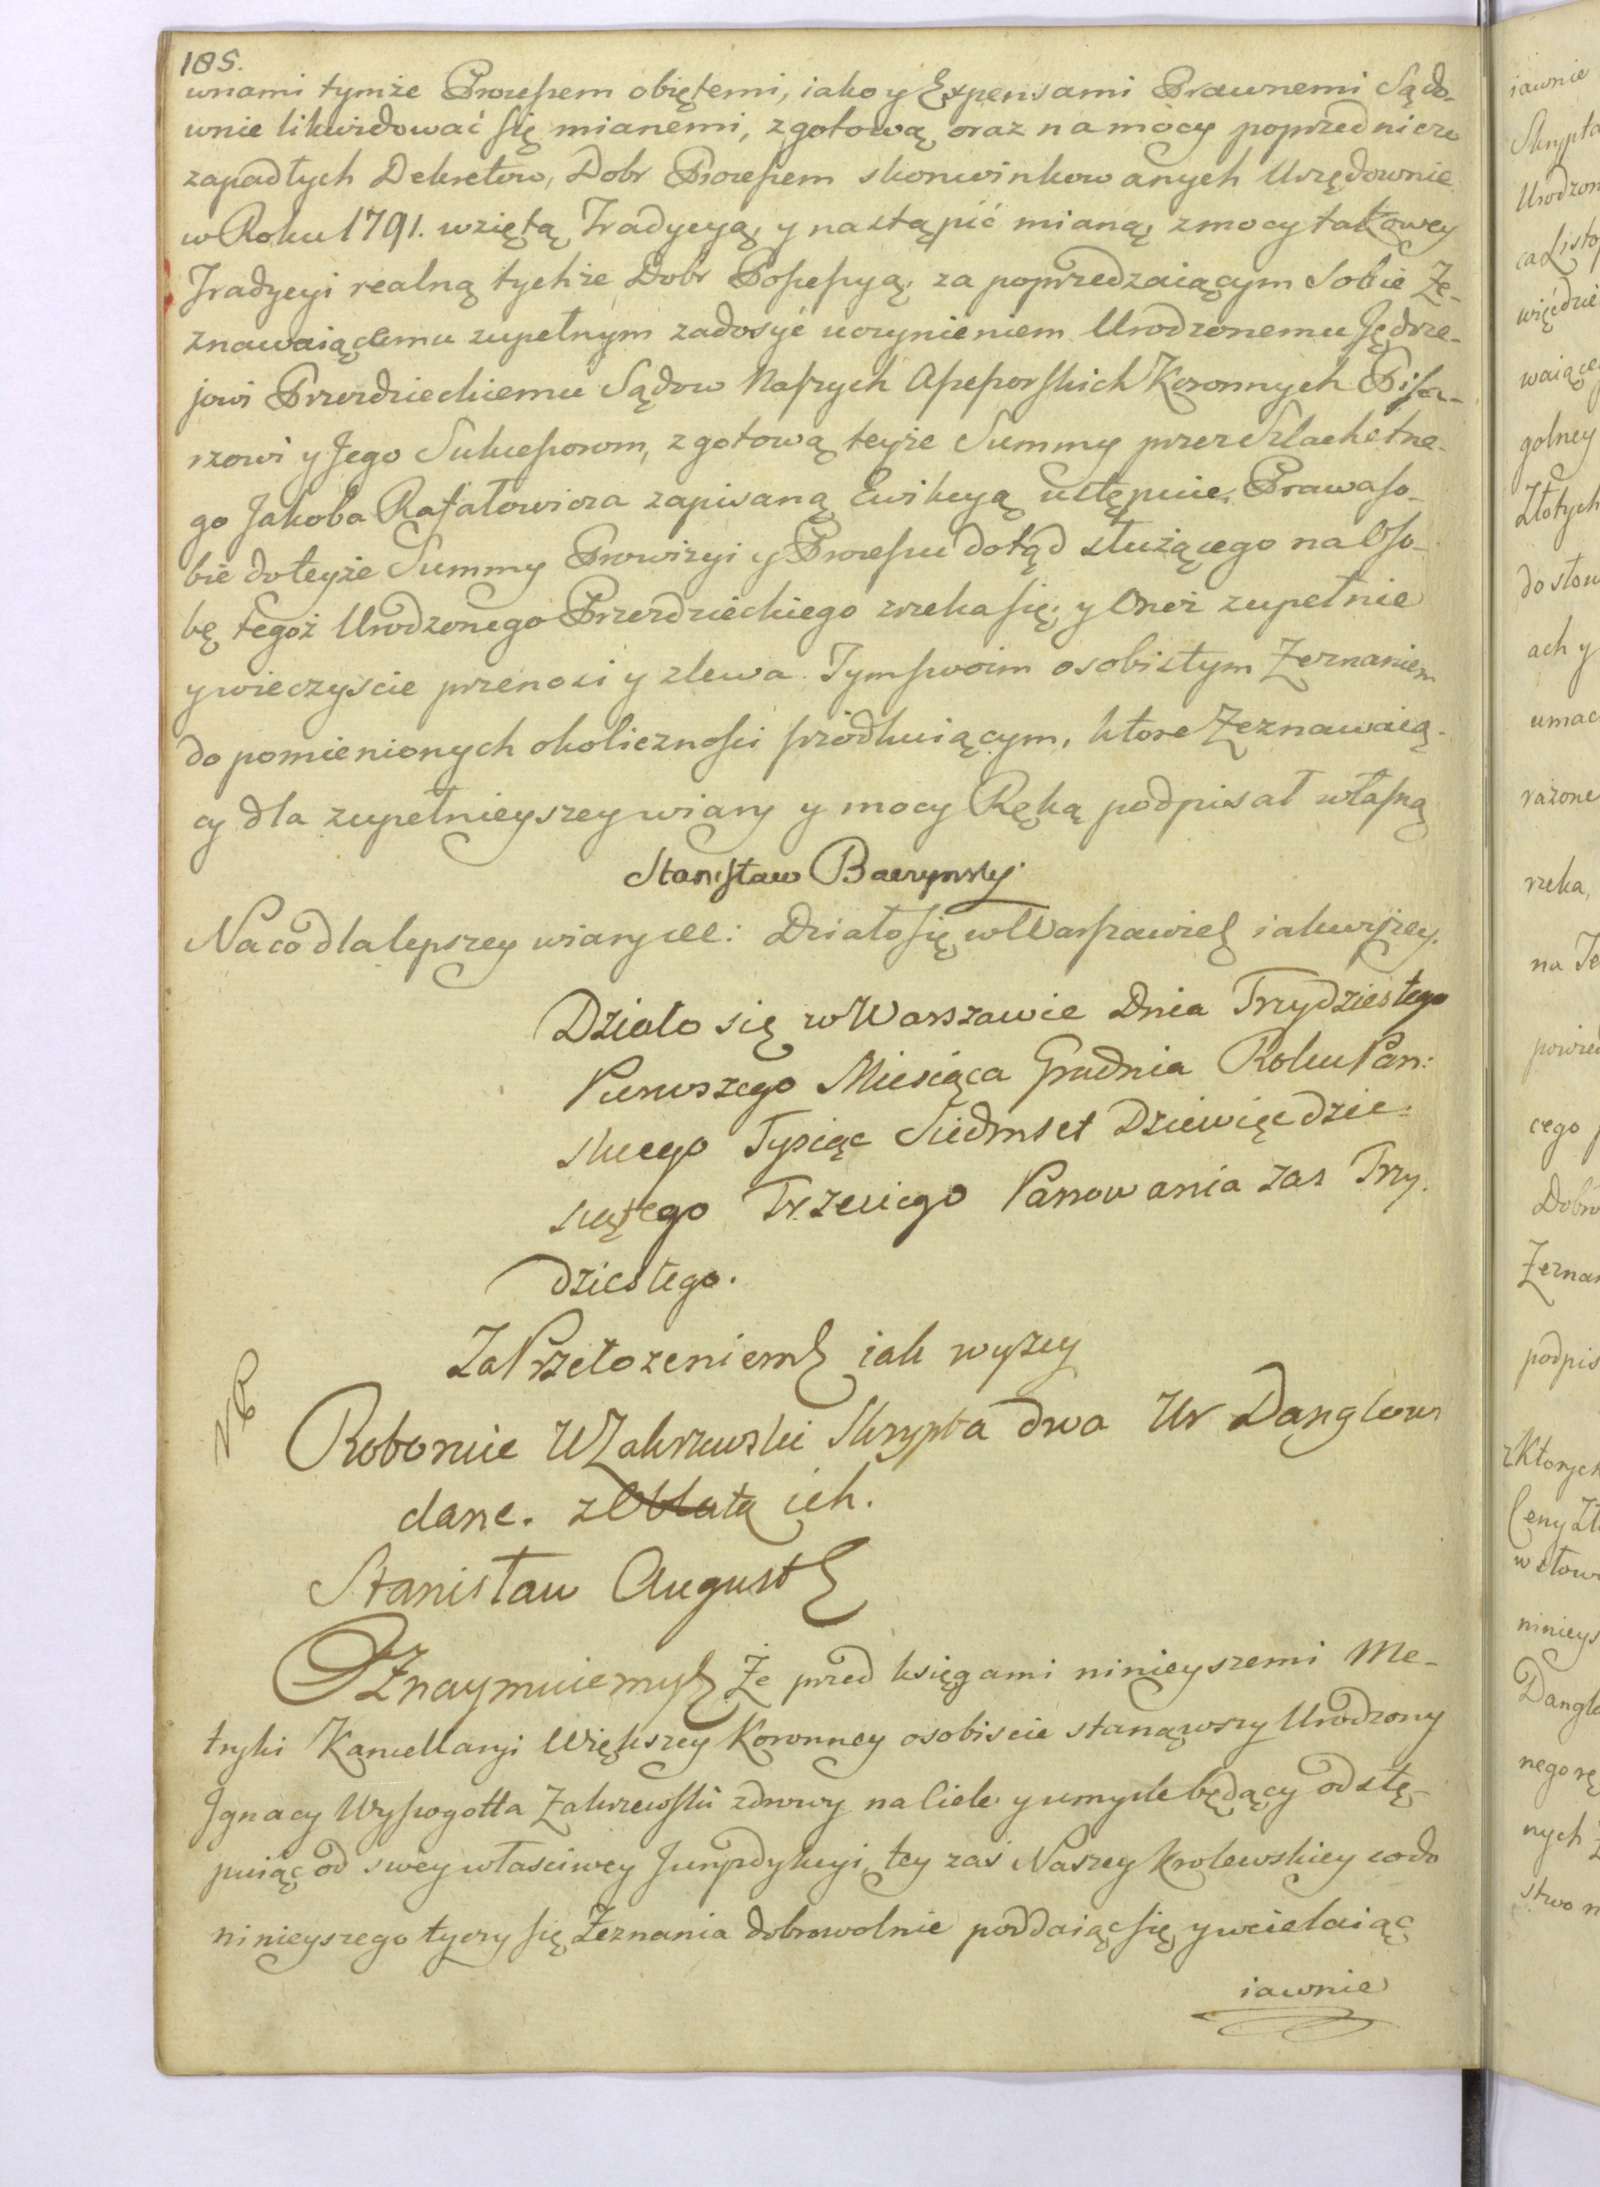 185.
wnami tymże Processem obiętemi, iako y Expensami Prawnemi Sądo-
wnie likwidować się mianemi, zgotową oraz na mocy poprzedniczo
zapadłych Dekretow, Dobr Processem skonwinkowanych Urzędownie
w Roku 1791. wziętą Tradycyą, y nastąpić mianą, z mocy takowey
Tradycyi realną tychże Dobr Possessyą, za poprzedzaiącym Sobie Ze-
znawaiącemu zupełnym zadosyć uczynieniem Urodzonemu Jędrze-
jowi Przezdzieckiemu Sądow Naszych Assessorskich Koronnych Pisa-
rzowi y Jego Sukcessorom, z gotową teyże Summy przez Szlachetne-
go Jakoba Rafałowicza zapisaną Ewikcyą ustępuie, Prawa so-
bie do teyże Summy Prowizyi y Processu dotąd służącego na Oso-
bę tegoż Urodzonego Przezdzieckiego zrzeka się, y Oneż zupełnie
y wieczyscie przenosi y zlewa. Tym swoim osobistym Zeznaniem
do pomienionych okoliczności śrzodkuiącym, ktore Zeznawaią-
cy dla zupełnieyszey wiary y mocy Ręką podpisał własną
Stanisław Baczynsky
Na co dla lepszey wiary etc: Działo się w Warszawie iak wyżey.
Działo się w Warszawie Dnia Trzydziestego
Pierwszego Miesiąca Grudnia Roku Pan:
skiego Tysiąc Siedmset Dziewięćdzie-
siątego Trzeciego Panowania zas Trzy-
dziestego.
Za Przełozeniem iak wyzey
NB
Roboruie W Zakrzewski Skrypta dwa Ur Danglowi
dane. z Oblatą ich.
Stanisław August
Oznaymuiemy Że przed księgami ninieyszemi Me-
tryki Kancellaryi Większey Koronney osobiscie stanąwszy Urodzony
Ignacy Wyssogotta Zakrzewski zdrowy na Ciele y umysle będący odstę-
puiąc od swey własciwey Juryzdykcyi, tey zaś Naszey Krolewskiey co do
ninieyszego tyczy się Zeznania dobrowolnie poddaiąc się y wcielaiąc
iawnie